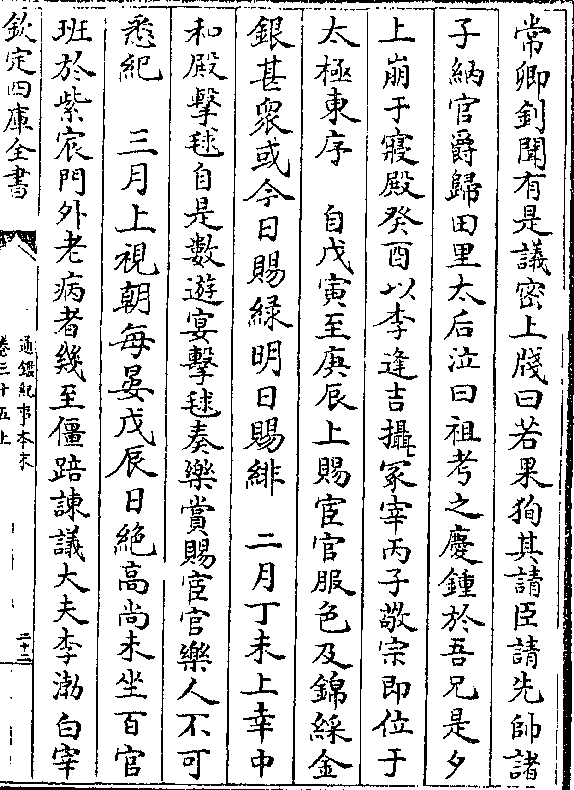 常卿釗聞有是議密上牋曰若果狥其請臣請先帥諸
子納官爵歸田里太后泣曰祖考之慶鍾於吾兄是夕
上崩于寢殿癸酉以李逢吉攝冢宰丙子敬宗即位于
太極東序　自戊寅至庚辰上賜宦官服色及錦綵金
銀甚衆或今日賜緑明日賜緋　二月丁未上幸中
和殿擊毬自是數遊宴擊毬奏樂賞賜宦官樂人不可
悉紀　三月上視朝每晏戊辰日絶高尚未坐百官
班於紫宸門外老病者幾至僵踣諫議大夫李渤白宰
欽定四庫全書
通鑑紀事本末
卷三十五上
二十二